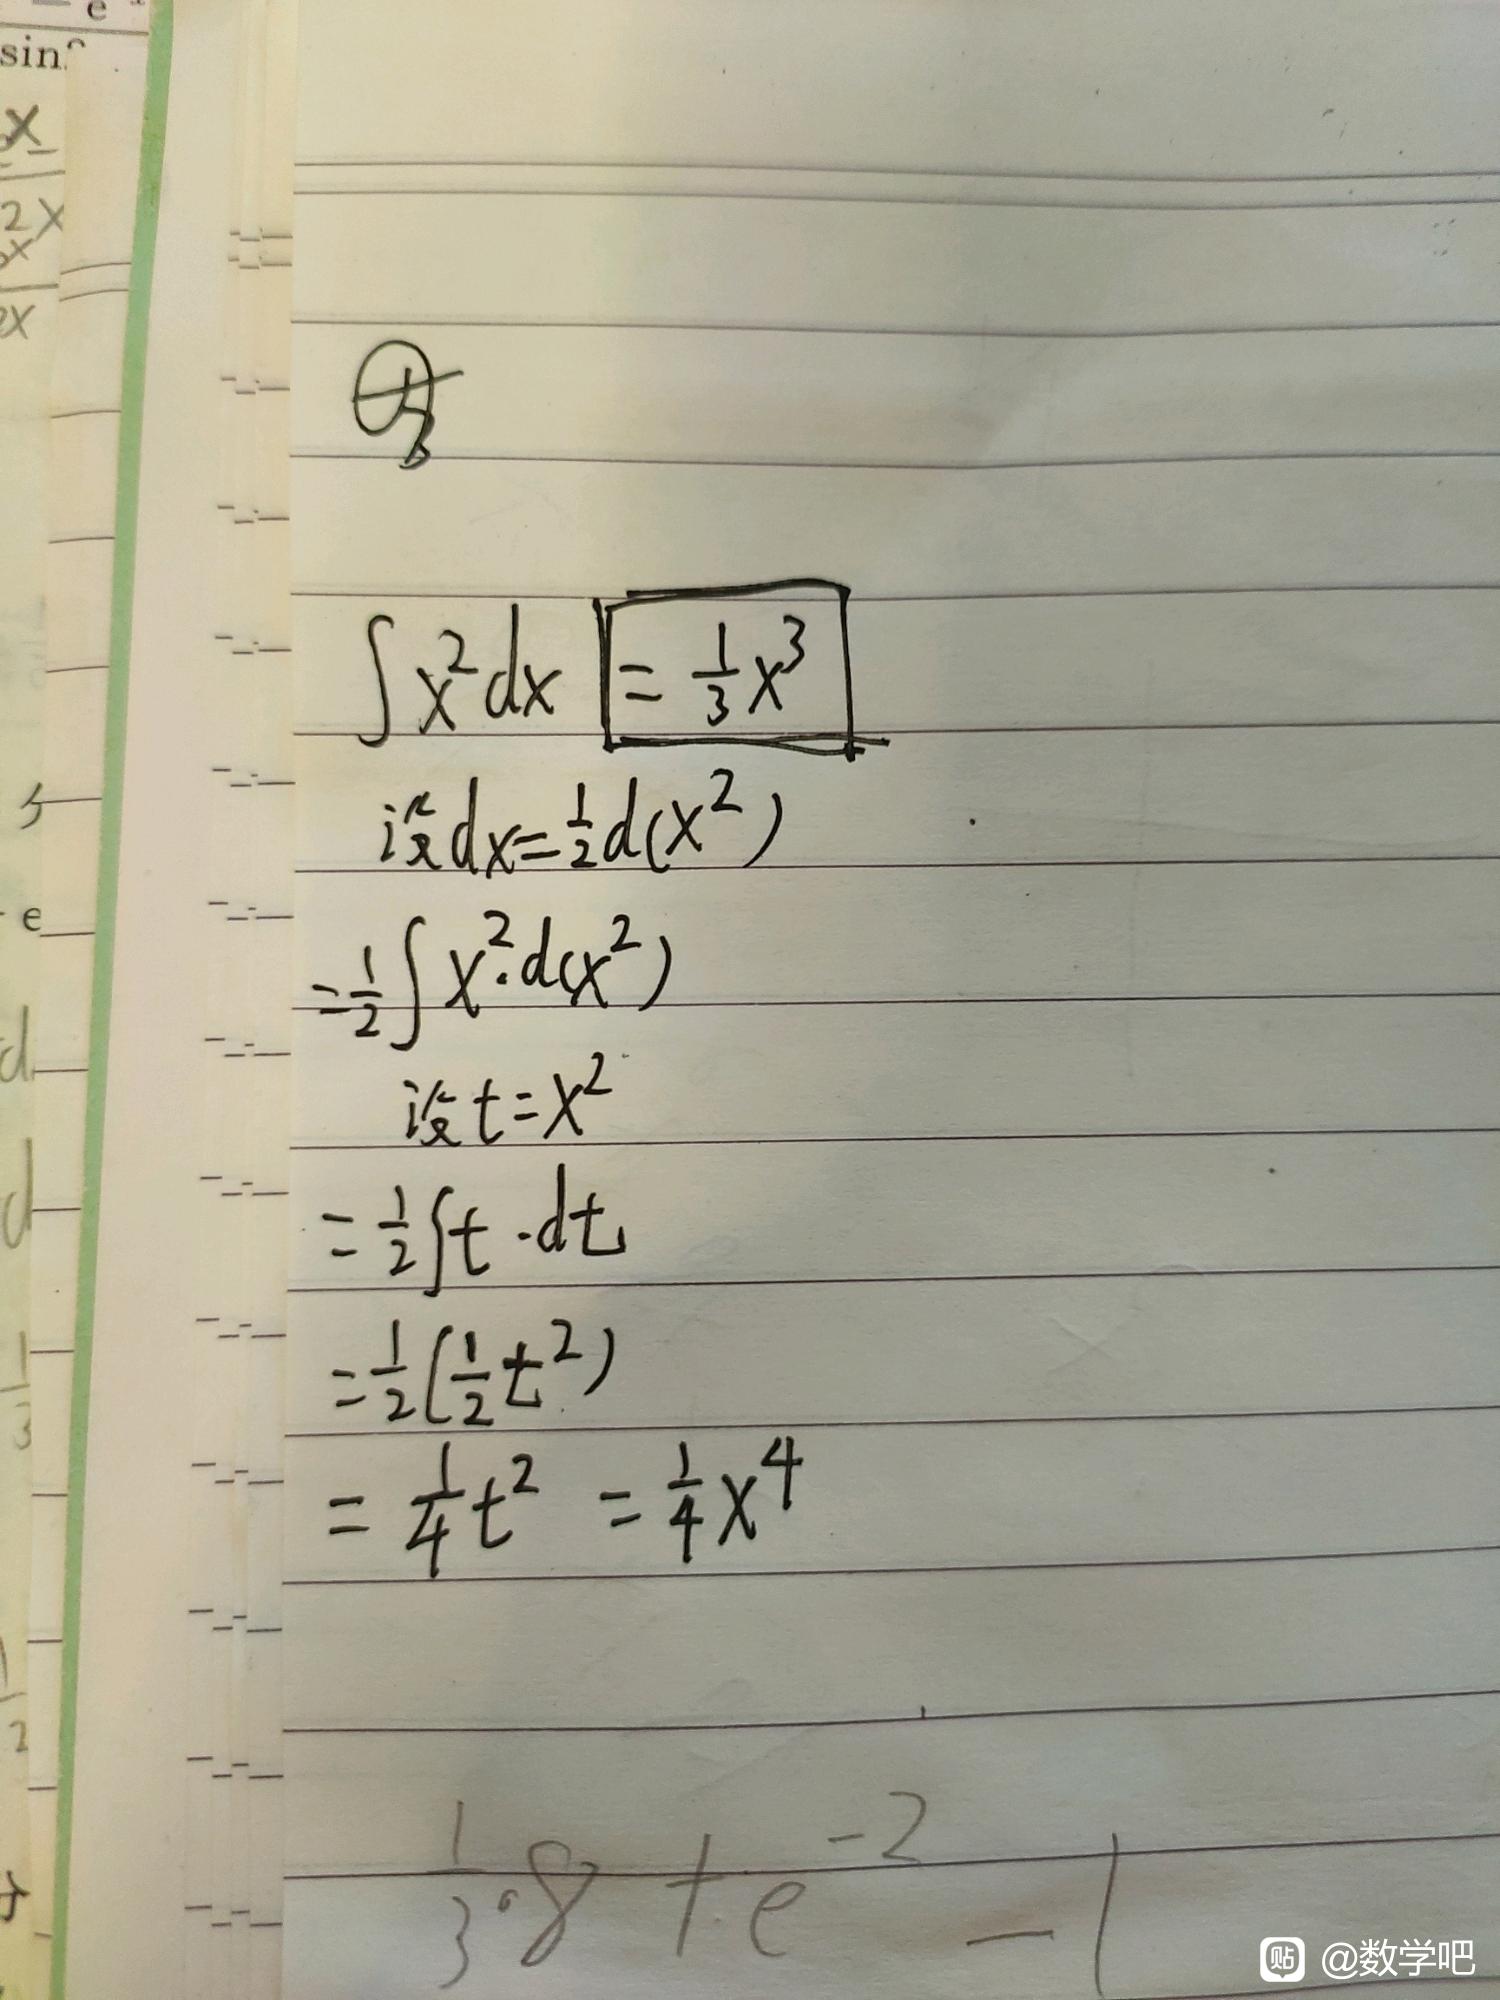 e
sin²
x
2x
x
2x
∫x²dx = 1/3 x³
设dx=1/2 d(x²)
=1/2∫x²·d(x²)
设t=x²
=1/2∫t·dt
=1/2(1/2 t²)
=1/4 t² =1/4 x⁴
e
d
d
1/3
1/2
1/3·8+e⁻²-1
贴 @数学吧